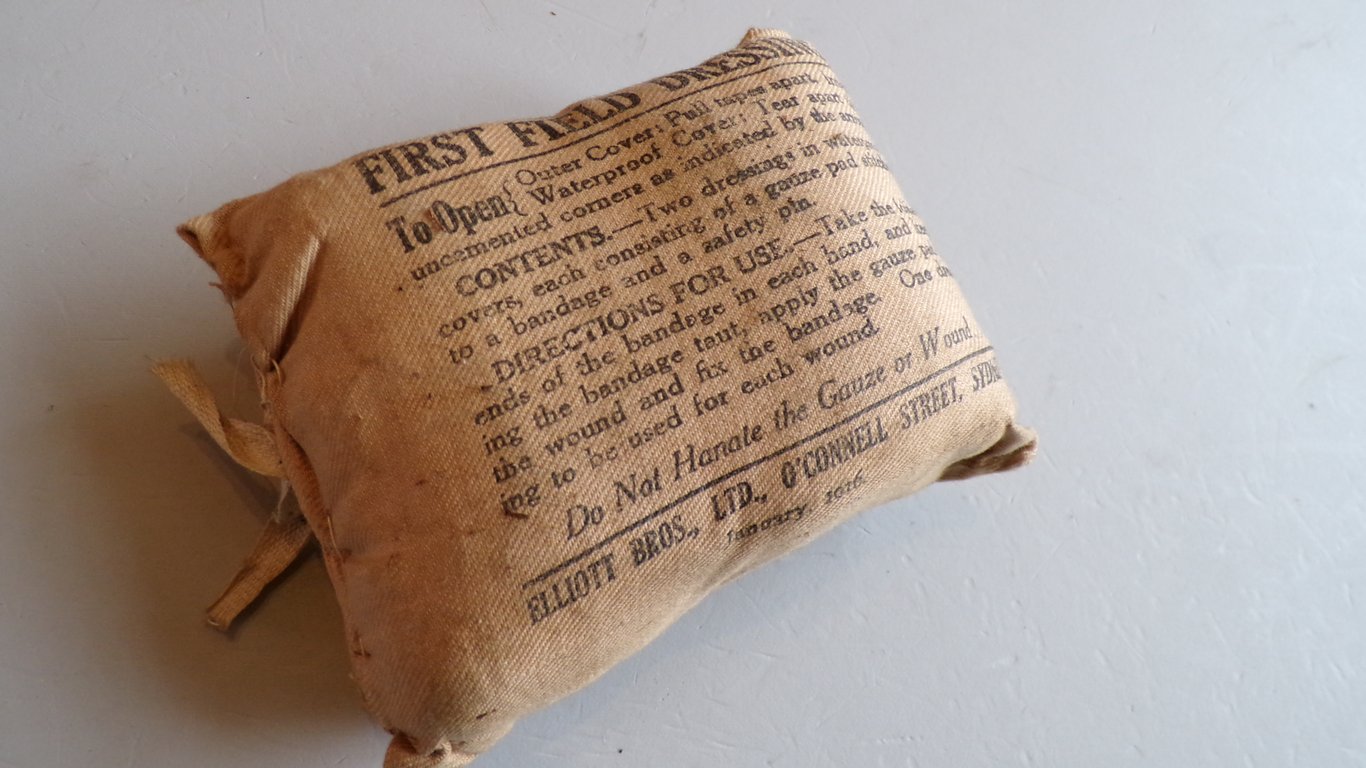 FIRST FIELD DRESSIN
To Open { Outer Cover: Pull tapes apart.
Waterproof Cover: Tear apart
uncemented corners as indicated by the
CONTENTS.—Two dressings in
covers, each consisting of a gauze pad
to a bandage and a safety pin.
DIRECTIONS FOR USE.—Take the
ends of the bandage in each hand, and
ing the bandage taut, apply the gauze
the wound and fix the bandage. One
ing to be used for each wound.
Do Not Handle the Gauze or Wound.
ELLIOTT BROS., LTD., O'CONNELL STREET, SYDNE
January 1916